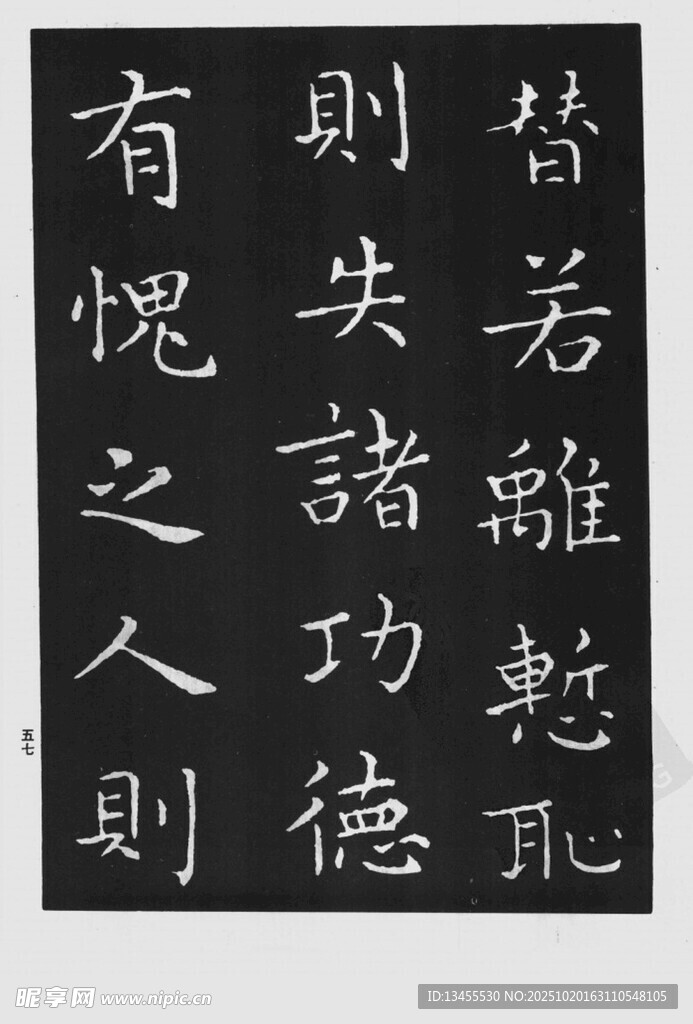 替若離慙耻
則失諸功德
有愧之人則
五七
昵享网 www.nipic.cn
ID:13455530 NO:20251020163110548105